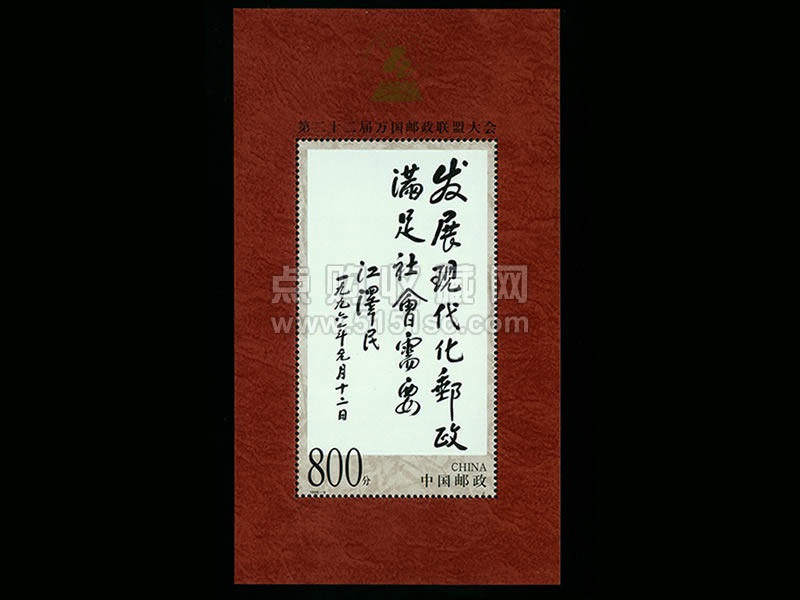 第二十二届万国邮政联盟大会
发展现代化郵政
满足社會需要
江澤民
一九九六年元月十二日
800分
CHINA
中国邮政
点购收藏网
www.5151sc.com